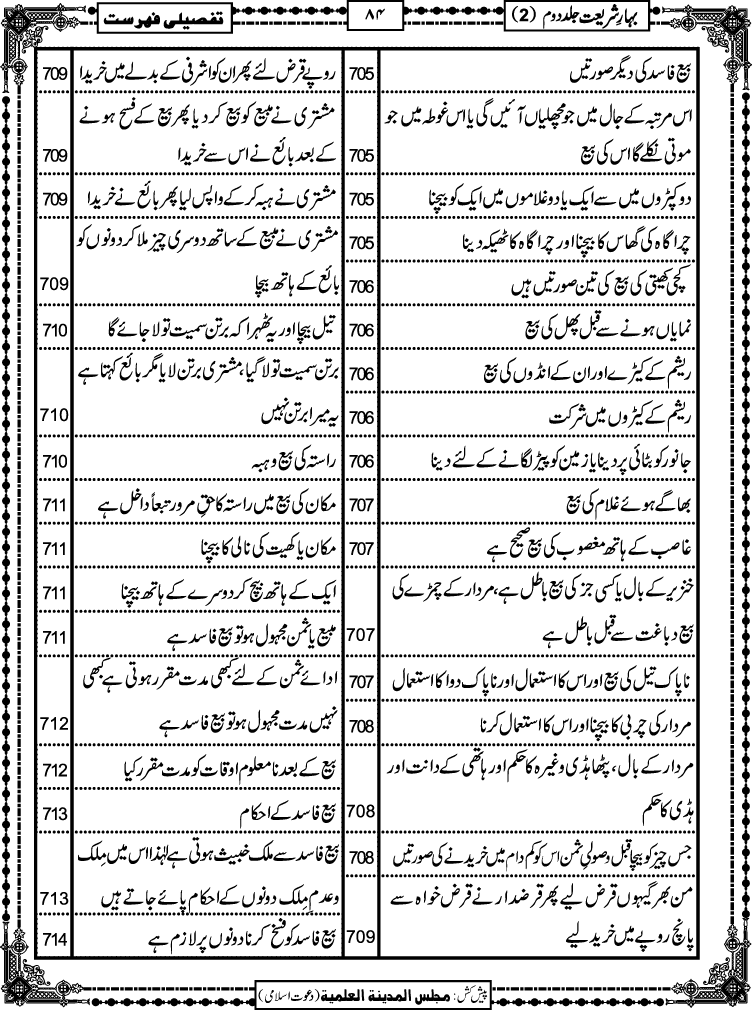 بہارِ شریعت جلد دوم (2)
۸۴
تفصیلی فہرست
بیع فاسد کی دیگر صورتیں 705
اس مرتبہ کے جال میں جو مچھلیاں آئیں گی یا اس غوطہ میں جو
موتی نکلے گا اس کی بیع 705
دو کپڑوں میں سے ایک یا دو غلاموں میں ایک کو بیچنا 705
چراگاہ کی گھاس کا بیچنا اور چراگاہ کا ٹھیکہ دینا 705
کچی کھیتی کی بیع کی تین صورتیں ہیں 706
نمایاں ہونے سے قبل پھل کی بیع 706
ریشم کے کیڑے اور ان کے انڈوں کی بیع 706
ریشم کے کیڑوں میں شرکت 706
جانور کو بٹائی پر دینا یا زمین کو پیڑ لگانے کے لئے دینا 706
بھاگے ہوئے غلام کی بیع 707
غاصب کے ہاتھ مغصوب کی بیع صحیح ہے 707
خنزیر کے بال یا کسی جز کی بیع باطل ہے، مردار کے چمڑے کی
بیع دباغت سے قبل باطل ہے 707
ناپاک تیل کی بیع اور اس کا استعمال اور ناپاک دوا کا استعمال 707
مردار کی چربی کا بیچنا اور اس کا استعمال کرنا 708
مردار کے بال، پٹھا ہڈی وغیرہ کا حکم اور ہاتھی کے دانت اور
ہڈی کا حکم 708
جس چیز کو بیچا قبل وصولیِ ثمن اس کو کم دام میں خریدنے کی صورتیں 708
من بھر گیہوں قرض لیے پھر قرضدار نے قرض خواہ سے
پانچ روپے میں خرید لیے 709
روپے قرض لئے پھر ان کو اشرفی کے بدلے میں خریدا 709
مشتری نے مبیع کو بیع کردیا پھر بیع کے فسخ ہونے
کے بعد بائع نے اس سے خریدا 709
مشتری نے ہبہ کرکے واپس لیا پھر بائع نے خریدا 709
مشتری نے مبیع کے ساتھ دوسری چیز ملا کر دونوں کو
بائع کے ہاتھ بیچا 709
تیل بیچا اور یہ ٹھہرا کہ برتن سمیت تولا جائے گا 710
برتن سمیت تولا گیا، مشتری برتن لایا مگر بائع کہتا ہے
یہ میرا برتن نہیں 710
راستہ کی بیع و ہبہ 710
مکان کی بیع میں راستہ کا حقِ مرور تبعاً داخل ہے 711
مکان یا کھیت کی نالی کا بیچنا 711
ایک کے ہاتھ بیچ کر دوسرے کے ہاتھ بیچنا 711
مبیع یا ثمن مجہول ہو تو بیع فاسد ہے 711
ادائے ثمن کے لئے کبھی مدت مقرر ہوتی ہے کبھی
نہیں مدت مجہول ہو تو بیع فاسد ہے 712
بیع کے بعد نامعلوم اوقات کو مدت مقرر کیا 712
بیع فاسد کے احکام 713
بیع فاسد سے ملک خبیث ہوتی ہے لہٰذا اس میں مِلک
و عدمِ مِلک دونوں کے احکام پائے جاتے ہیں 713
بیع فاسد کو فسخ کرنا دونوں پر لازم ہے 714
پیش کش: مجلس المدینة العلمیة (دعوت اسلامی)